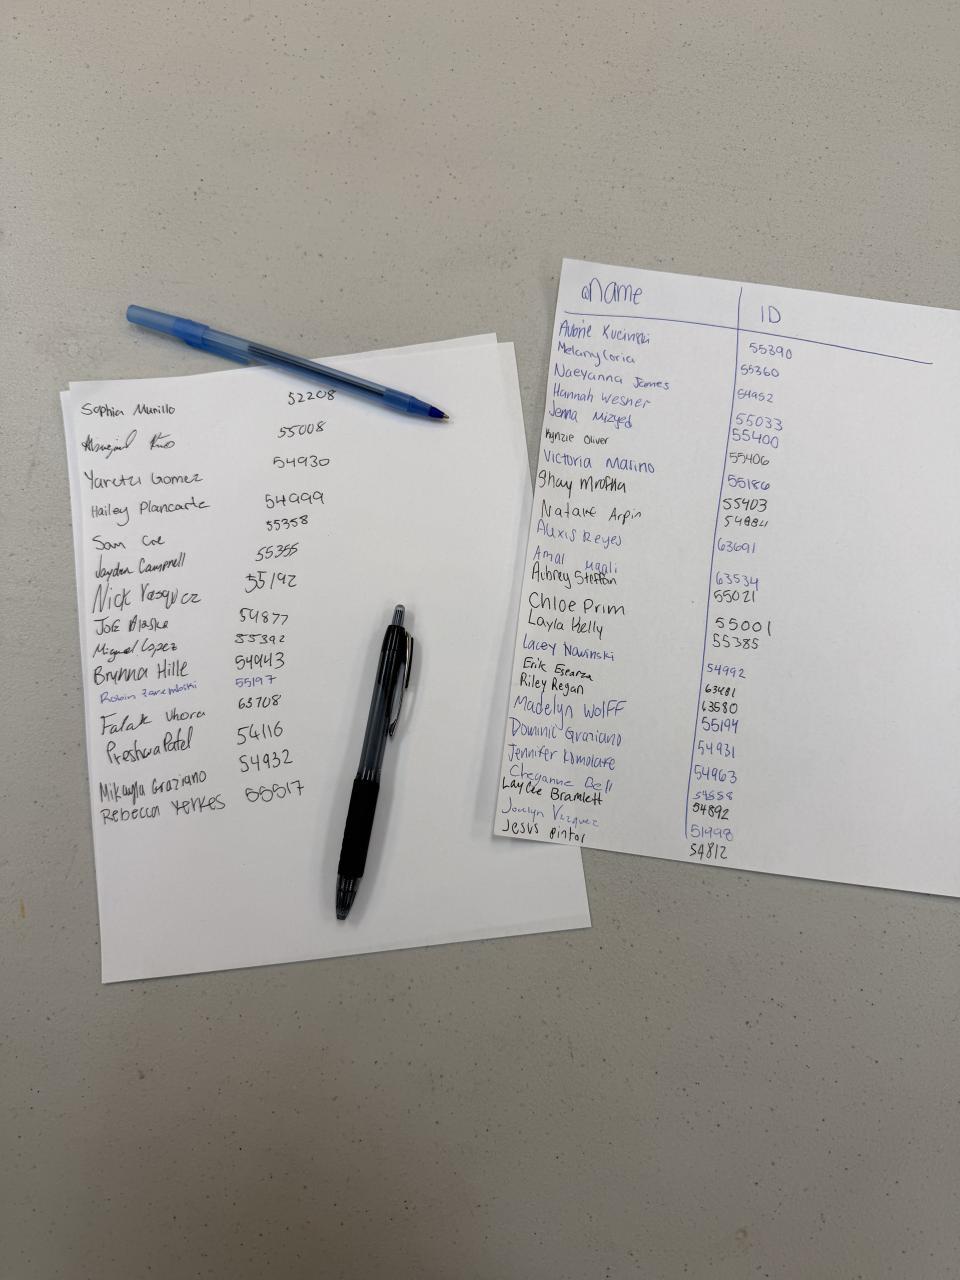 Sophia Murillo 52208
55008
Gomez 54930
Hailey Plancarte 54999
Sam Coe 55358
Jayden Campbell 55355
Nick Vasquez 55192
Joe Blaske 54877
Miguel Lopez 55392
Brynna Hille 54943
Robin 55197
Falak Vhora 63708
Preshwa Patel 54116
Mikayla Graziano 54932
Rebecca Yerkes 55517
Name ID
Aubrie Kucinski 55390
Melany Coria 55360
Naeyanna James 54952
Hannah Wesner 55033
Jenna Mizyed 55400
Kynzie Oliver 55406
Victoria Marino 55186
Shay 55403
Natalie Arpin
Alexis Reyes 63691
Amal 63534
Aubrey Steffan 55021
Chloe Prim 55001
Layla Kelly 55385
Lacey Nowinski 54992
Erik Esparza 63481
Riley Regan 63580
Madelyn Wolff 55194
Dominic Graziano 54931
Jennifer 54963
Cheyanne Bell
Laycee Bramlett 54892
Jocelyn Vazquez 51998
Jesus Pintor 54812